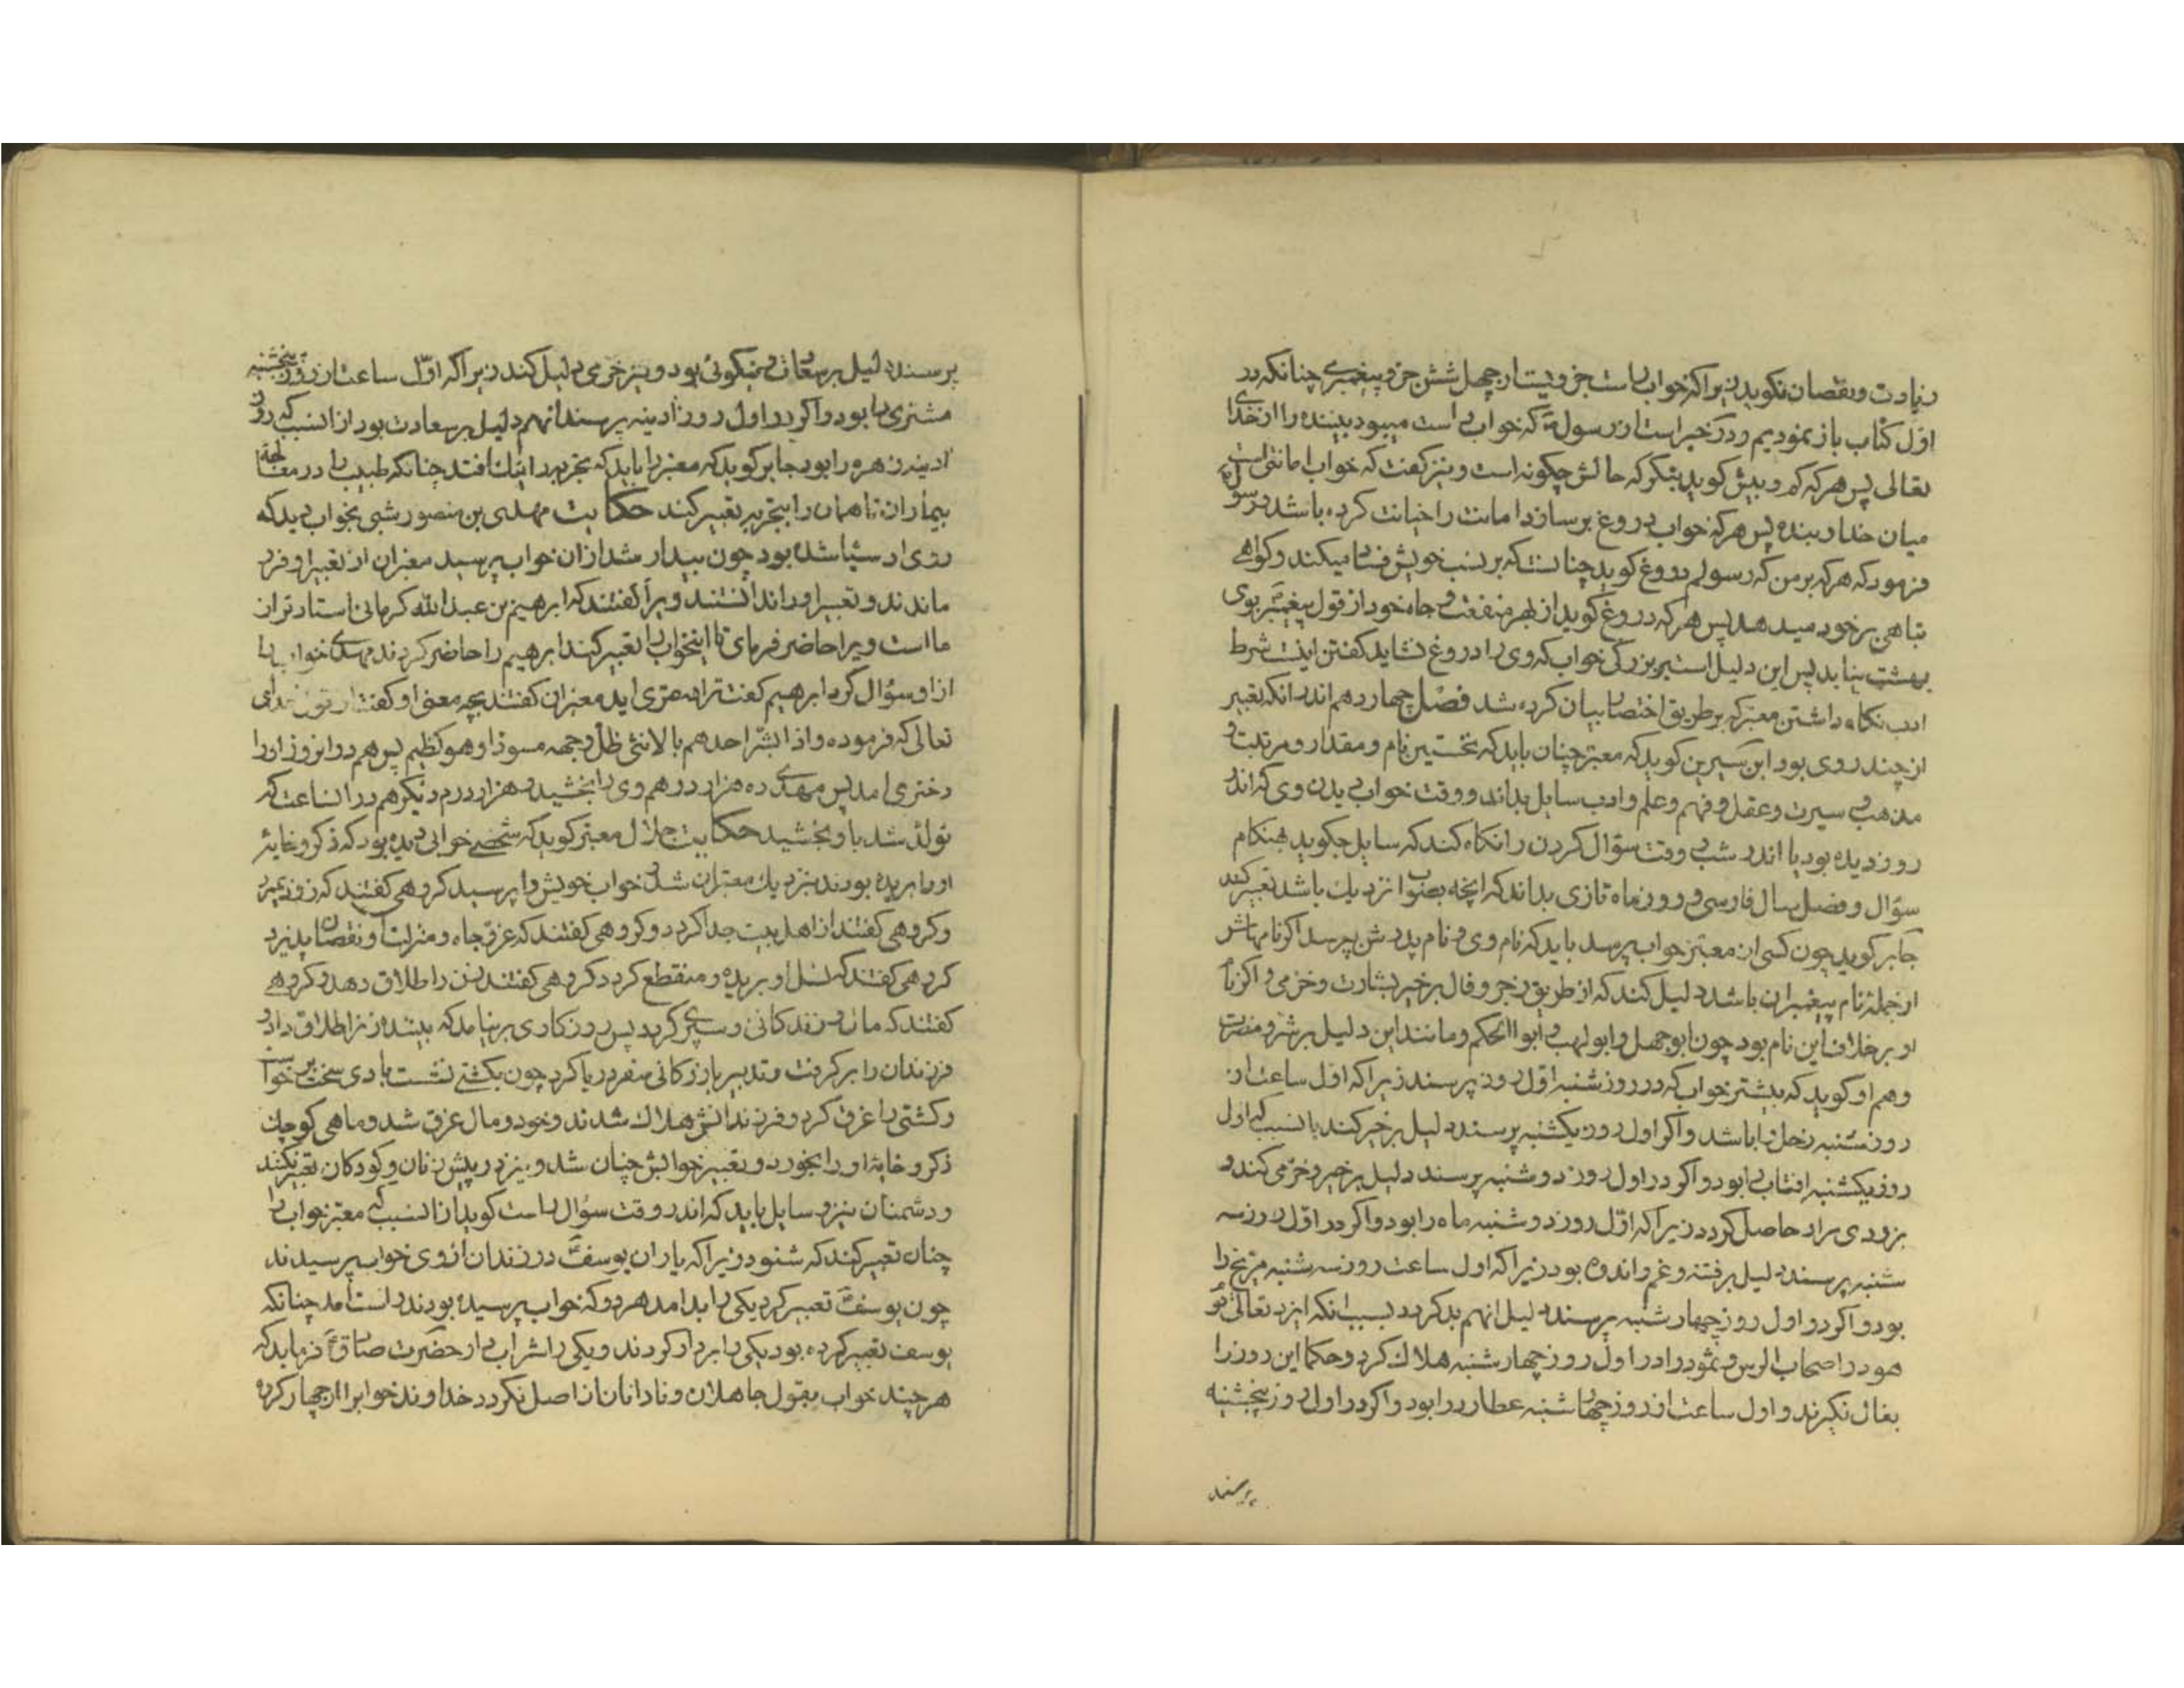 زیادت و نقصان نکوید زیرا که خواب راست جزویست از چهل شش جزو پیغمبری چنانکه در
اول کتاب باز نمودیم و در خبر است از رسول که خواب راست میبود بیننده را از خدای
تعالی پس هر که کم و بیش کوید بنکر که حالش چکونه است و نیز کفت که خواب امانتی است
میان خدا و بنده پس هر که خواب دروغ برسازد امانت را خیانت کرده باشد و رسول
فرمود که هر که بر من که رسولم دروغ کوید چنانست که بر نسب خویش میکند و کواهی
تباهی بر خود میدهد پس هر که دروغ کوید از بهر منفعت و جاه خود از قول پیغمبر بوی
بهشت نیابد پس این دلیل است بر بزرکی خواب که وی را دروغ نشاید کفتن اینست شرط
ادب نکاه داشتن معبر که بر طریق اختصار بیان کرده شد فصل چهاردهم اندر انکه تعبیر
از چند روی بود ابن سیرین کوید که معبر چنان باید که نخستین نام و مقدار و مرتبت و
مذهب و سیرت و عقل و فهم و علم و ادب سایل بداند و وقت خواب دیدن وی که اندر
روز دیده بود یا اندر شب و وقت سؤال کردن را نکاه کند که سایل چکوید هنکام
سؤال و فصل سال فارسی و روز ماه تازی بداند که انچه بصواب نزدیک باشد تعبیر کند
جابر کوید چون کسی از معبر خواب پرسد باید که نام وی و نام پدرش بپرسد اکر نامهاش
از جمله نام پیغمبران باشد دلیل کند که از طریق زجر و فال بر خیر بشارت و خرمی و اکر نام
او بر خلاف این نام بود چون ابوجهل و ابولهب و ابوالحکم و مانند این دلیل بر شر و مضرت
و هم او کوید که بیشتر خواب که در روز شنبه اول روز پرسند زیرا که اول ساعت از
روز شنبه زحل را باشد و اکر اول روز یکشنبه پرسند دلیل بر خیر کند بانسبب که اول
روز یکشنبه افتاب را بود و اکر در اول روز دوشنبه پرسند دلیل بر خیر و خرمی کند و
بزودی مراد حاصل کردد زیرا که اول روز دوشنبه ماه را بود و اکر در اول روز سه
شنبه پرسند دلیل بر فتنه و غم و اندوه بود زیرا که اول ساعت روز سه شنبه مریخ را
بود و اکر در اول روز چهار شنبه پرسند دلیل انهم بد کردد بسبب انکه ایزد تعالی قوم
هود را اصحاب الرس و ثمود را در اول روز چهار شنبه هلاک کرد و حکما این روز را
بفال نکیرند و اول ساعت از روز چهار شنبه عطارد را بود و اکر در اول روز پنجشنبه
پرسند
پرسند دلیل بر سعادت و نیکوئی بود و نیز خرمی دلیل کند زیرا که اول ساعت از روز پنجشنبه
مشتری را بود و اکر در اول روز ادینه پرسند انهم دلیل بر سعادت بود از انسبب که روز
ادینه زهره را بود جابر کوید که معبر را باید که تجربه را نیک افتد چنانکه طبیب را در معالجهٔ
بیماران تا همان را بتجربه تعبیر کند حکایت مهدی بن منصور شبی بخواب دید که
روی او سیاه شده بود چون بیدار شد از ان خواب پرسید معبران از تعبیر او فرو
ماندند و تعبیر او را ندانستند ویرا کفتند که ابرهیم بن عبدالله کرمانی استادتر از
ما است ویرا حاضر فرمای تا اینخواب را تعبیر کند ابرهیم را حاضر کردند مهدی خواب را
از او سؤال کرد ابرهیم کفت ترا دختری اید معبران کفتند بچه معنی او کفت از قول خدای
تعالی که فرموده و اذا بشر احدهم بالانثی ظل وجهه مسودا و هو کظیم پس هم در انروز او را
دختری امد پس مهدی ده هزار درهم وی را بخشید و هزار درم دیکر هم در انساعت که
تولد شد باو بخشید حکایت جلال معبر کوید که شخصی خوابی دیده بود که ذکر و خایهٔ
او را بریده بودند بنزدیک معبران شد و خواب خویش را پرسید کروهی کفتند که زود بمیرد
و کروهی کفتند از اهل بیت جدا کردد و کروهی کفتند که عز و جاه و منزلت او نقصان پذیرد
کروهی کفتند که نسل او بریده و منقطع کردد کروهی کفتند زن را طلاق دهد و کروهی
کفتند که مال و زندکانی وی سپری کردد پس روزکاری برنیامد که بیشد و زن را طلاق داد و
فرزندان را برکرفت و تدبیر بازرکانی سفر دریا کرد چون بکشتی نشست بادی سخت برخواست
و کشتی را غرق کرد و فرزندانش هلاک شدند و خود و مال غرق شد و ماهی کوچک
ذکر و خایهٔ او را بخورد و تعبیر خوابش چنان شد و نیز در پیش زنان و کودکان تعبیر نکنند
و دشمنان نیز و سایل باید که اندر وقت سؤال راست کوید از انسبب که معبر خواب را
چنان تعبیر کند که شنود زیرا که یاران یوسف در زندان از وی خواب پرسیدند
چون یوسف تعبیر کرد یکی را بد امد هر دو که خواب پرسیده بودند راست امد چنانکه
یوسف تعبیر کرده بود یکی را بردار کردند و یکی را شراب دار حضرت صادق فرماید که
هر چند خواب بقول جاهلان و نادانان از اصل نکردد خداوند خواب را از چهار کروه